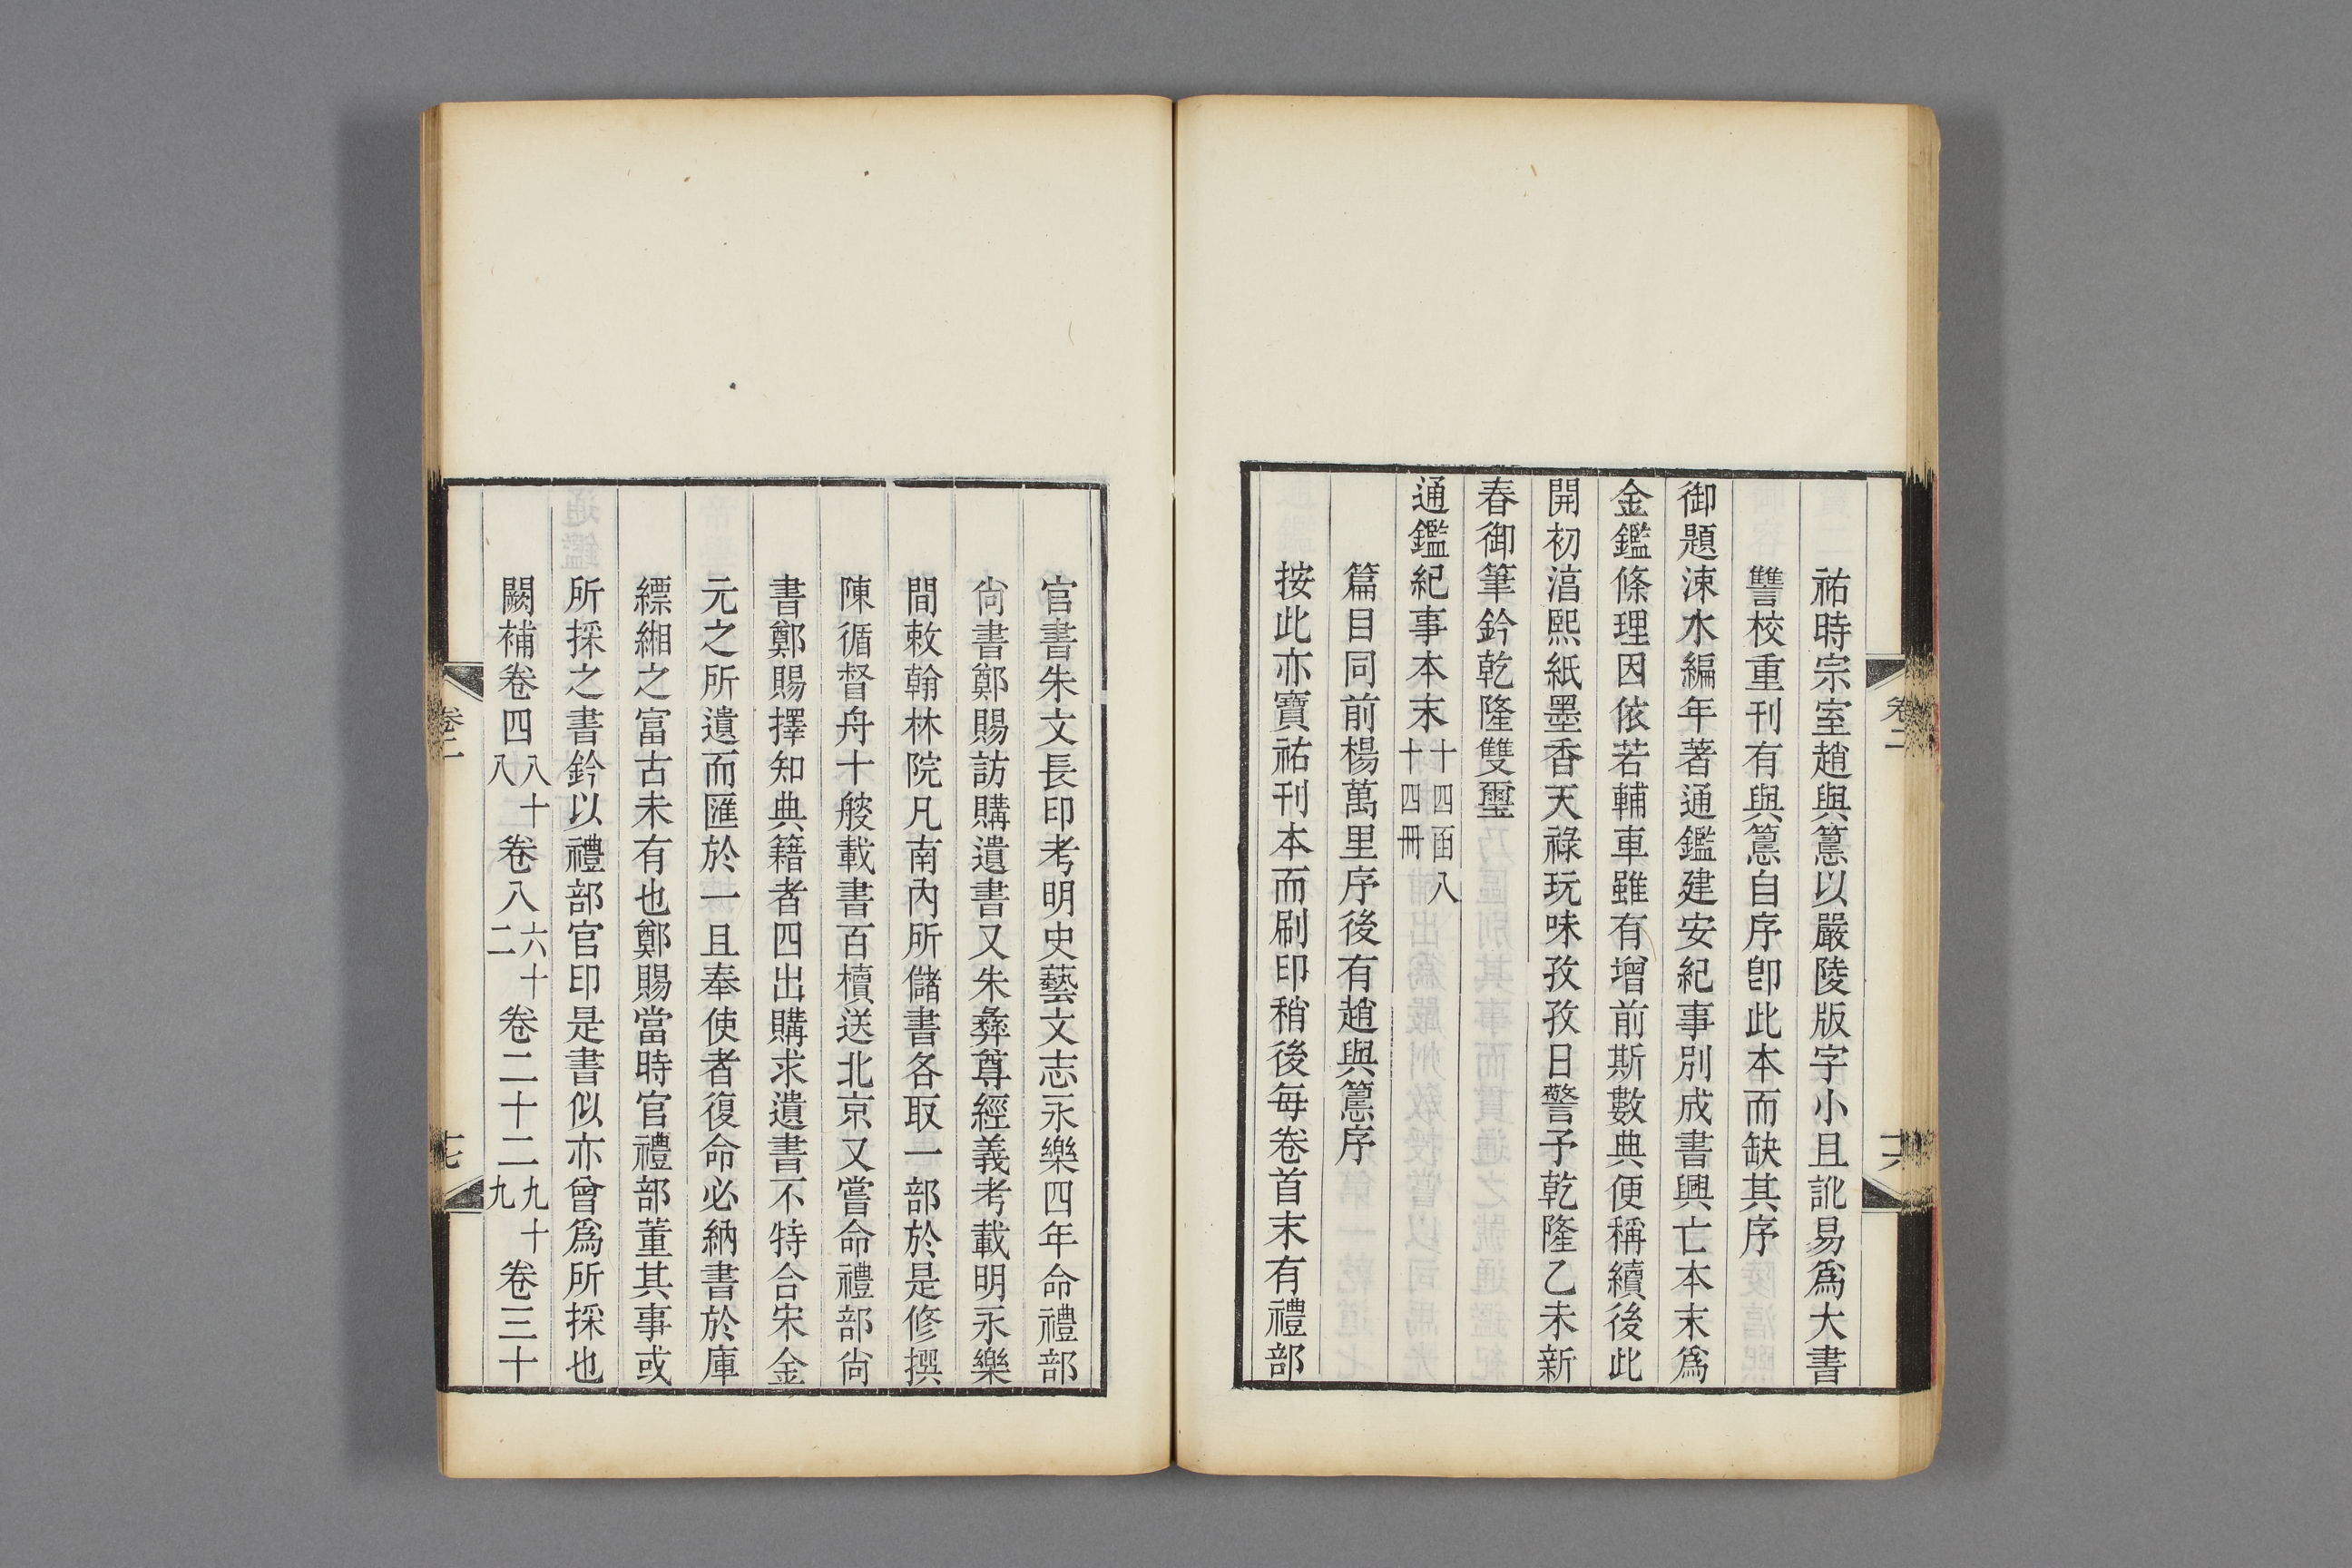 祐時宗室趙與𥲅以嚴陵版字小且訛易爲大書
讐校重刊有與𥲅自序卽此本而缺其序
御題涑水編年著通鑑建安紀事別成書興亡本末爲
金鑑條理因依若輔車雖有增前斯數典便稱續後此
開初湻熙紙墨香天祿玩味孜孜日警予乾隆乙未新
春御筆鈐乾隆雙璽
通鑑紀事本末十四函八十四冊
篇目同前楊萬里序後有趙與𥲅序
按此亦寶祐刊本而刷印稍後每卷首末有禮部
卷二
十六
官書朱文長印考明史藝文志永樂四年命禮部
尙書鄭賜訪購遺書又朱彝尊經義考載明永樂
間敕翰林院凡南內所儲書各取一部於是修撰
陳循督舟十艘載書百櫝送北京又嘗命禮部尙
書鄭賜擇知典籍者四出購求遺書不特合宋金
元之所遺而匯於一且奉使者復命必納書於庫
縹緗之富古未有也鄭賜當時官禮部董其事或
所採之書鈐以禮部官印是書似亦曾爲所採也
闕補卷四八十八卷八六十二卷二十二九十九卷三十
卷二
十七